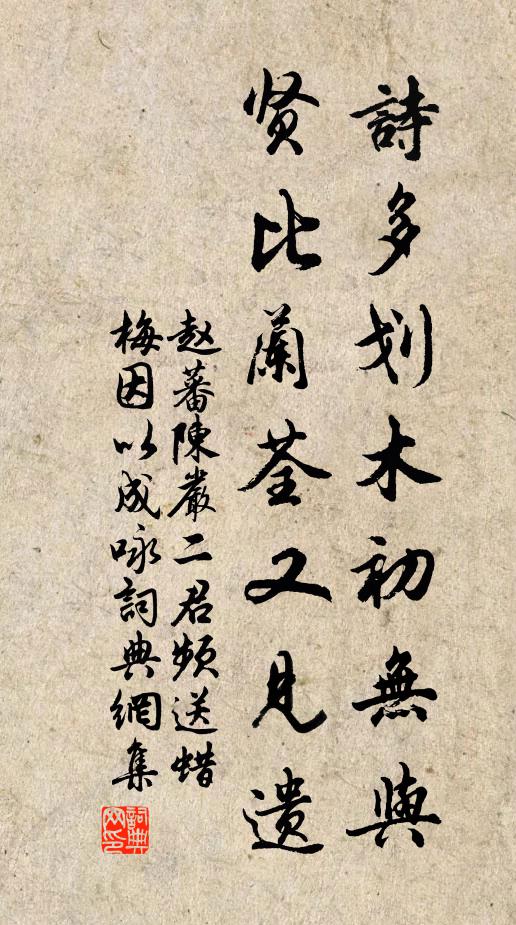 詩多划木初無與
贤比蘭荃又見遗
赵蕃陳嚴二君频送蜡
梅因以成咏詞典網集
詞典網印